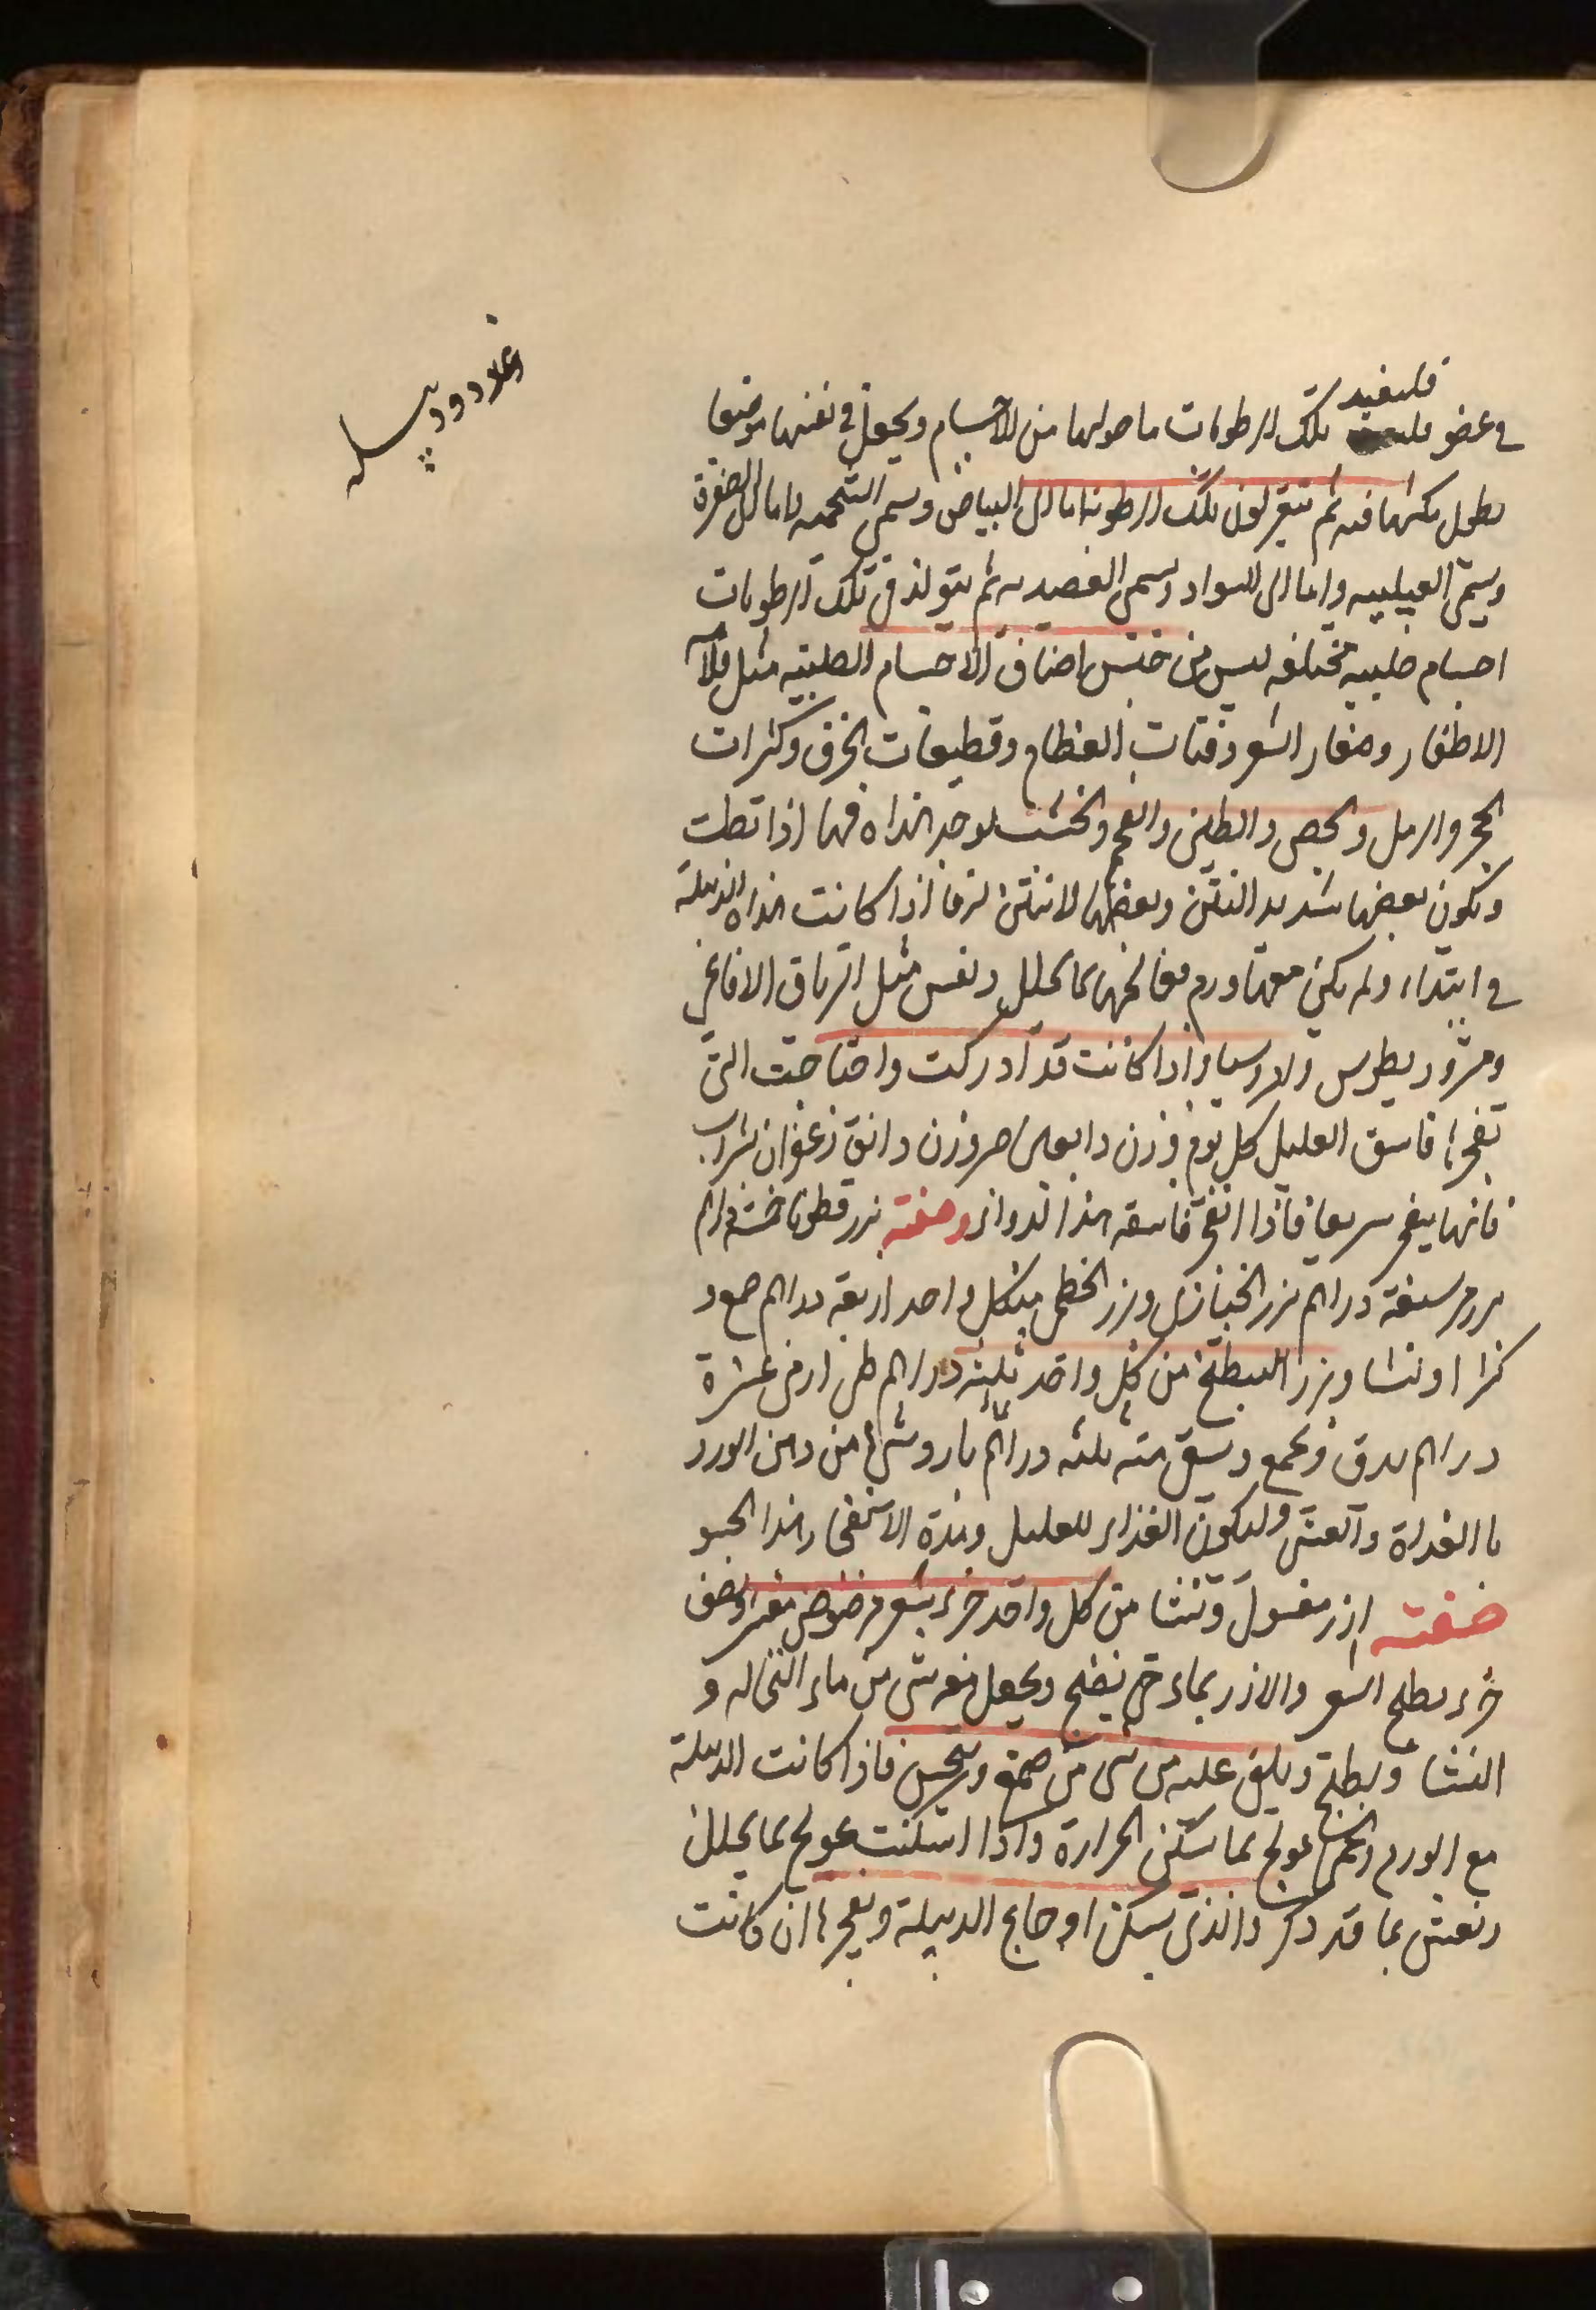 فليفيد
في عضو تلك الرطوبات ما حولها من الاجسام ويجعل في نفسها موضعا
بطول مكثها فيه ثم تتغير لون تلك الرطوبة اما الى البياض وسمى الشحميه واما الى الصفرة
وسمى العسليه واما الى السواد وسمى ثم يتولد في تلك الرطوبات
اجسام صلبيه مختلفه ليس من جنس اصناف الاجسام الصلبيه مثل قلامه
الاظفار وصغار الشعر وفتات العظام وقطيعات الخزف وكسرات
الحجر والرمل والجص والطين والفحم والخشب يوجد هذاه فيها اذا بطت
وتكون بعضها شديد النتن وبعضها لا نتن لها فاذا كانت هذاه الدبيلة
في ابتداء ولم يكن معها ورم فعالجها بما يحلل ونفس مثل الترياق الافاعي
ومثروديطوس واذا كانت قد ادركت واحتاجت الى
تفجرها فاسق العليل كل يوم وزن وزن دانق زعفران بشراب
فانها يتفجر سريعا فاذا انفجر فاسقه هذا الدواء وصفته بزر قطونا خمسة دراهم
سبعة دراهم بزر الخبازى وبزر الخطمى من كل واحد اربعة دراهم صمغ و
كثيرا ونشا وبزر البطيخ من كل واحد ثلثه دراهم طين ارمني عشرة
دراهم يدق ويجمع ويسقى منه ثلثه دراهم بارد وشيء من دهن الورد
بالغداة والعشي وليكون الغذاء للعليل ومدة الانفجار هذا الحسو
صفته ارز مغسول ونشا من كل واحد جزء شعير مرضوض مقشر نصف
جزء يطبخ الشعير والارز بماء حتى ينضج ويجعل معه شى من ماء النخاله و
النشا ويطبخ ويلقى عليه من شى من صمغ ويتحسى فاذا كانت الدبيلة
مع الورم والحمى عولج بما يسكن الحرارة واذا اسكنت عولج بما يحلل
ونفش بما قد ذكر والذى يسكن اوجاع الدبيلة ويفجرها ان كانت